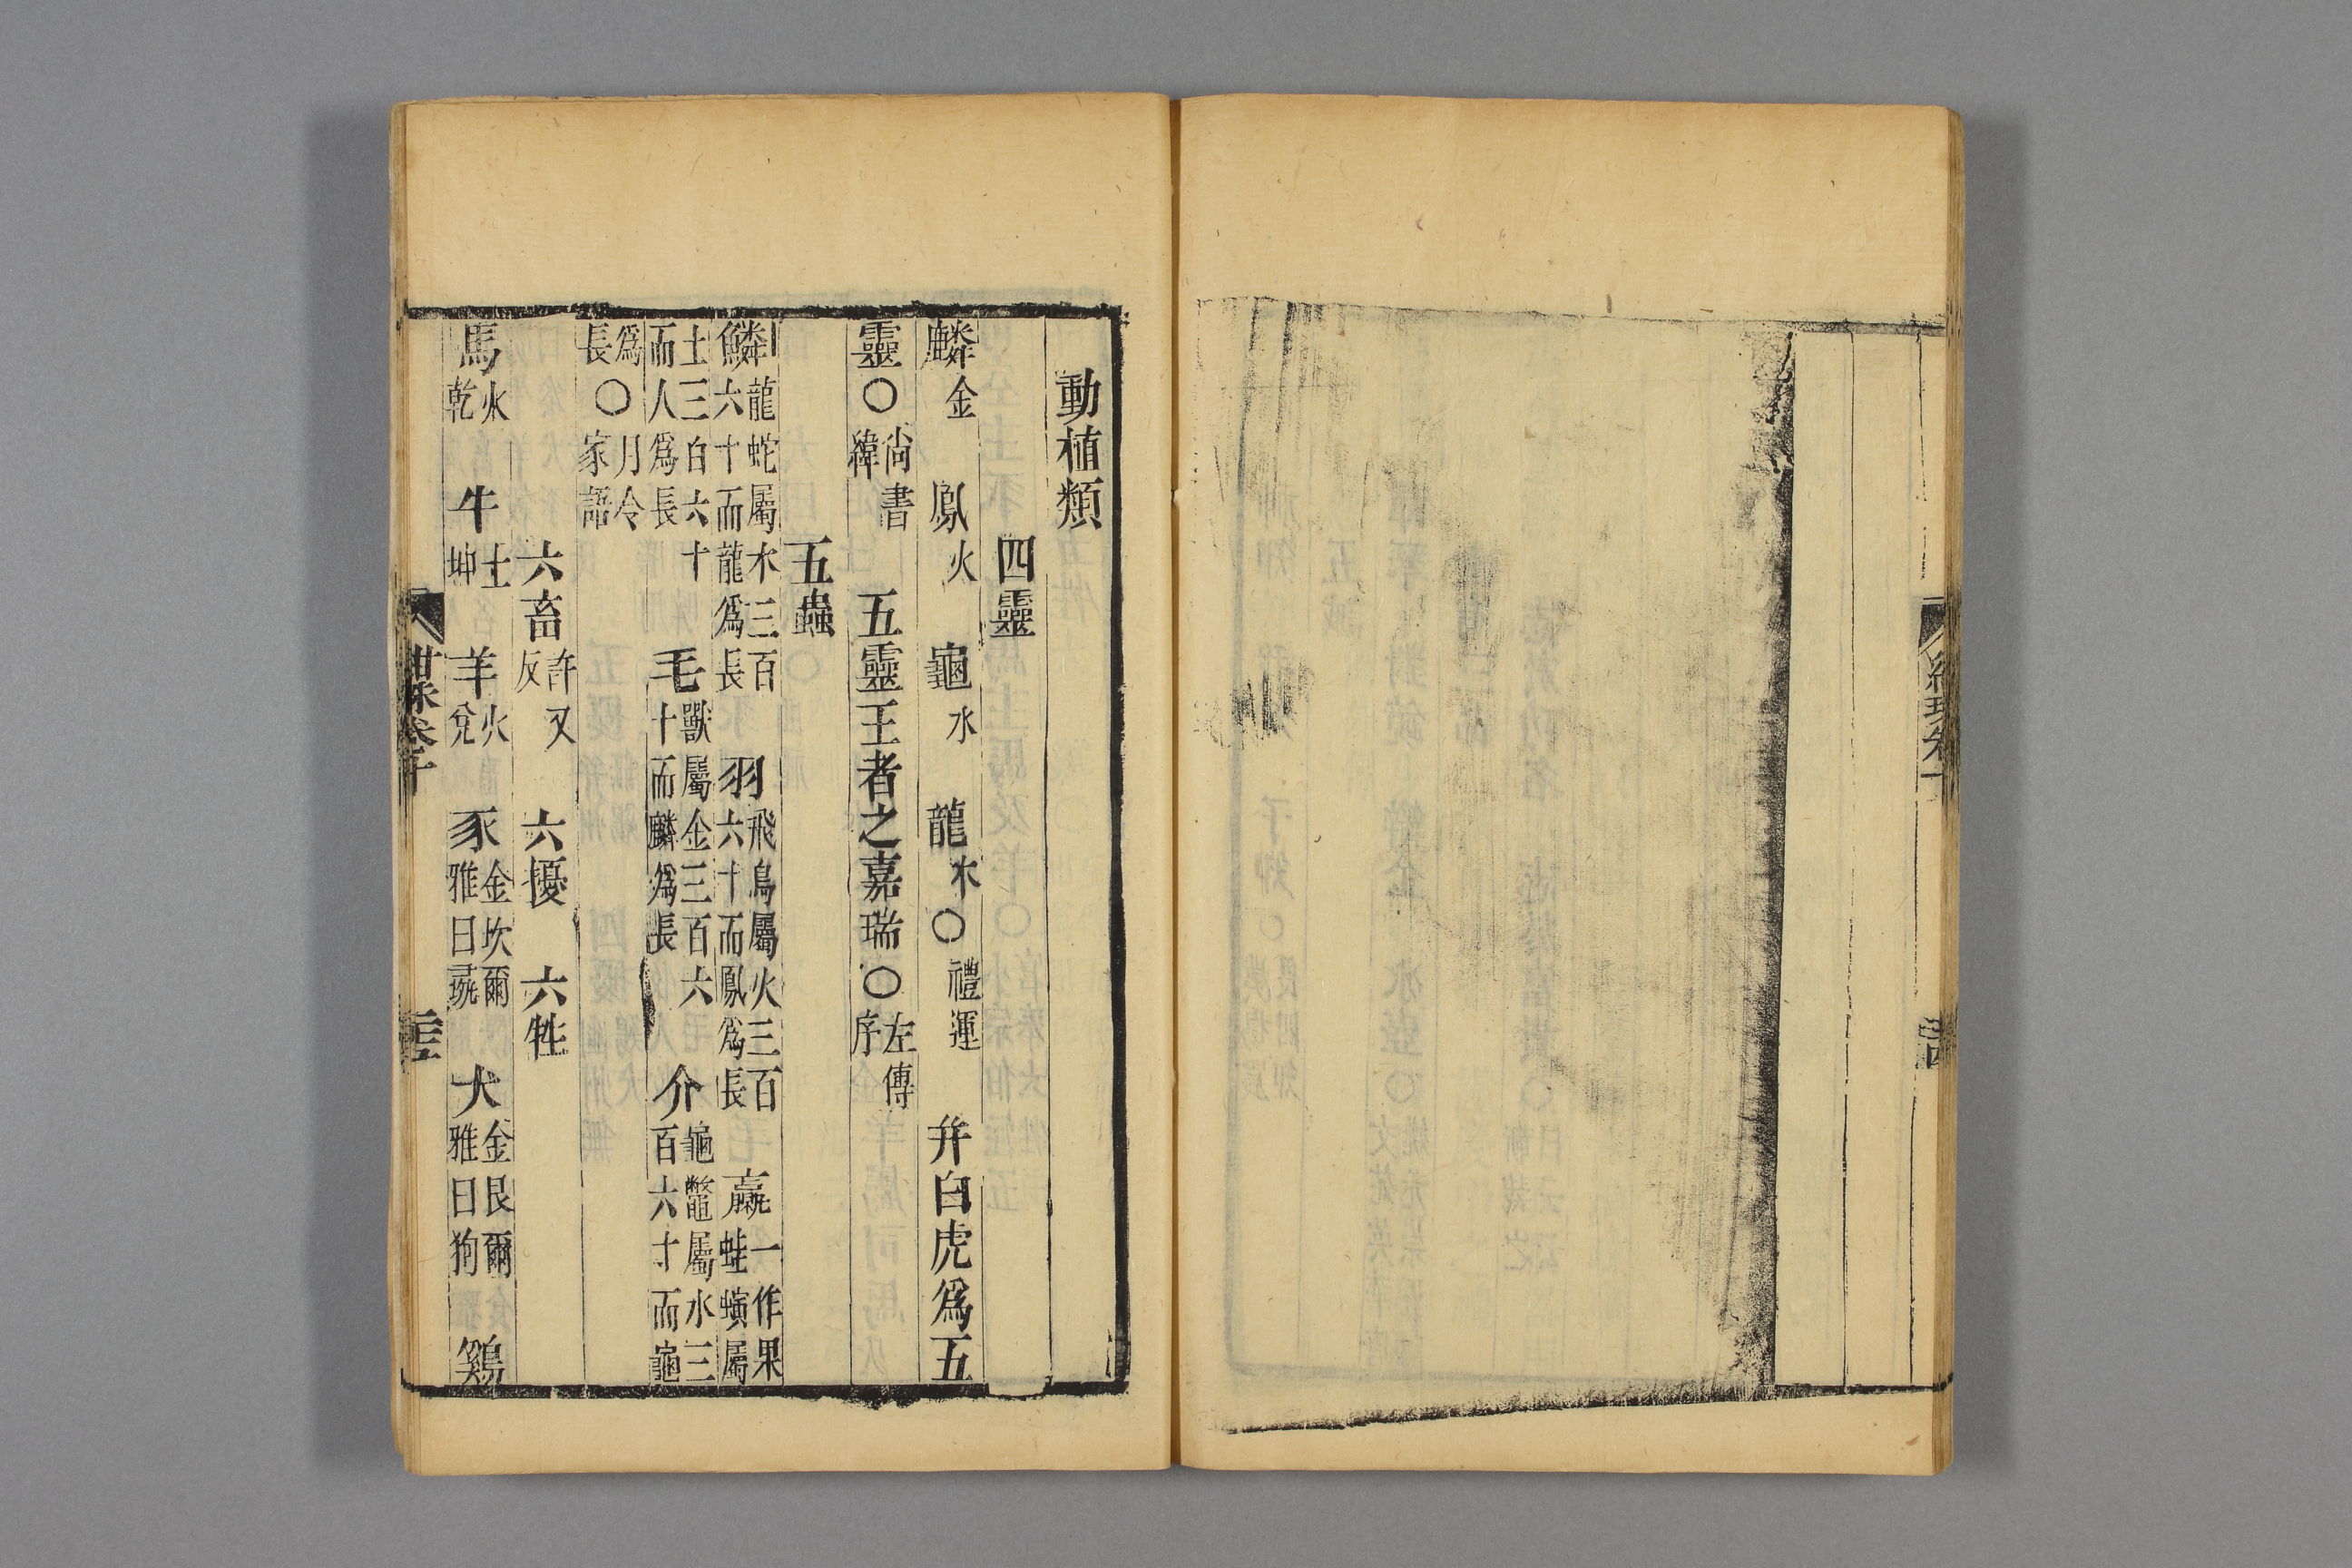 動植類
四靈
麟金 鳳火 龜水 龍木〇禮運 并白虎爲五
靈〇尚書緯 五靈王者之嘉瑞〇左傳序
五蟲
鱗龍蛇屬木三百六十而龍爲長 羽飛鳥屬火三百六十而鳳爲長 臝一作果蛙蟥屬
土三百六十而人爲長 毛獸屬金三百六十而麟爲長 介龜鼈屬水三百六十而龜
爲長〇月令家語
六畜許又反 六擾 六牲
馬火乾 牛土坤 羊火兌 豕金坎爾雅曰彘 犬金艮爾雅曰狗 鷄